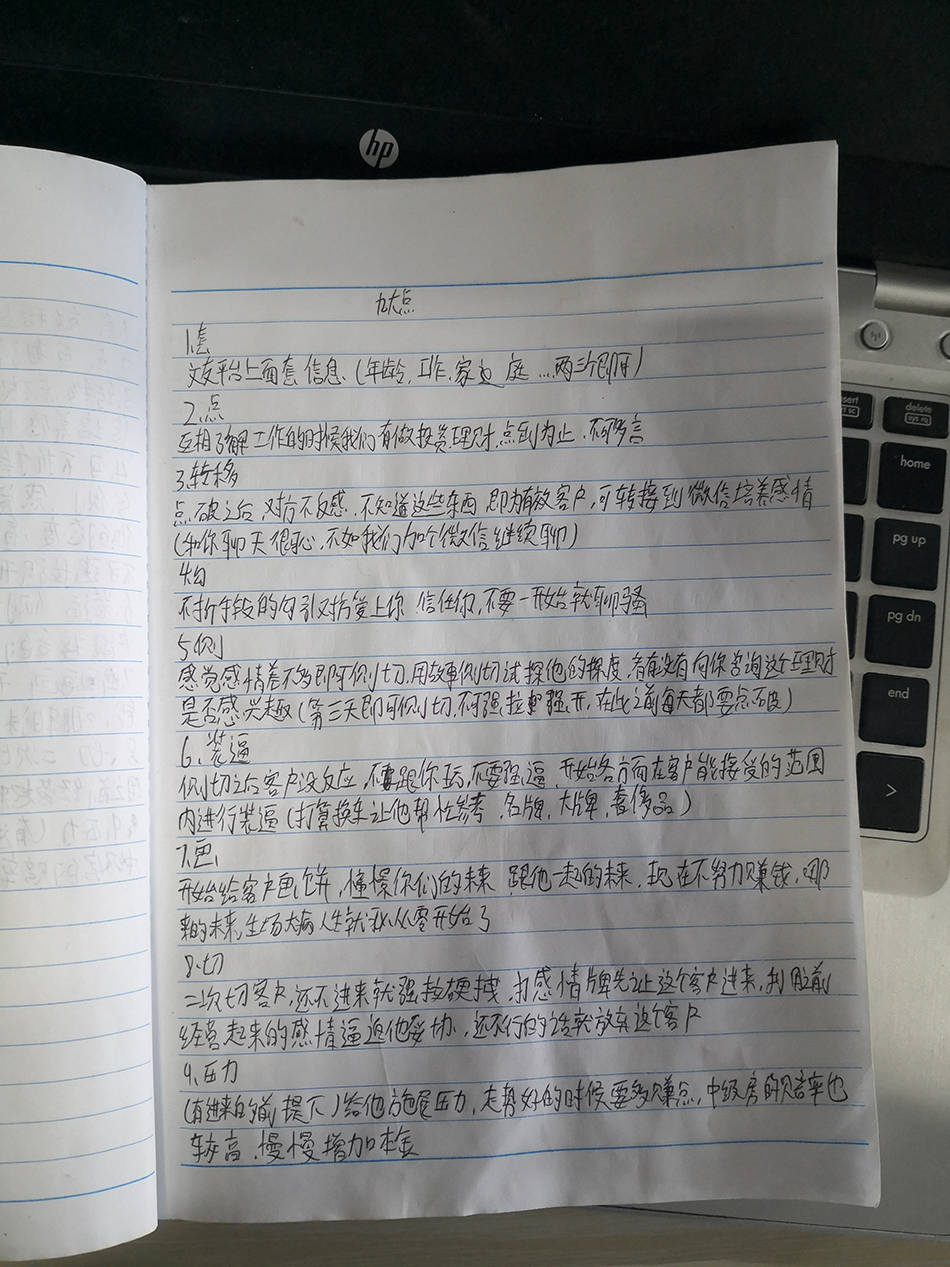 hp
九大点
1.套
交友平台上面套信息.(年龄,工作,家庭...两三个即可)
2.点
互相了解工作的时候我们有做投资理财,点到为止.不可多言
3.转移
点破之后,对方不反感.不知道这些东西,即为有效客户,可转接到微信培养感情
(和你聊天很开心,不如我们加个微信继续聊)
4.勾
不折手段的勾引对方爱上你 信任你,不要一开始就聊骚
5.侧
感觉感情差不多即可侧切.用故事侧切试探他的深度,看有没有向你咨询这个理财
是否感兴趣(第三天即可侧切,不可强拉硬,在此之前每天都要点破)
6、装逼
侧切之后客户没反应,不要跟你玩,不要强逼,开始各方面在客户能接受的范围
内进行装逼(打算换车让他帮忙参考.名牌,大牌,奢侈品)
7.画
开始给客户画饼,憧憬你们的未来 跟他一起的未来,现在不努力赚钱,哪
来的未来,生场大病人生就从零开始了
8.切
二次切客户,还不进来就强拉硬拽,打感情牌先让这个客户进来,利用之前
经营起来的感情逼迫他妥协,还不行的话就放弃这个客户
9.压力
(有进来的前提下)给他施展压力,走势好的时候要多赚点,中级房的赔率也
较高,慢慢增加本金
insert
delete
sys rq
home
pg up
pg dn
end
>